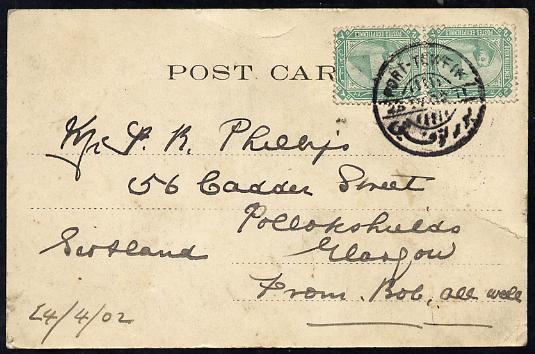 POST CAR
PORT-TEWFIK
Mr. P. R. Phillips
56 Cadder Street
Pollokshields
Scotland Glasgow
From Bob, all well
24/4/02